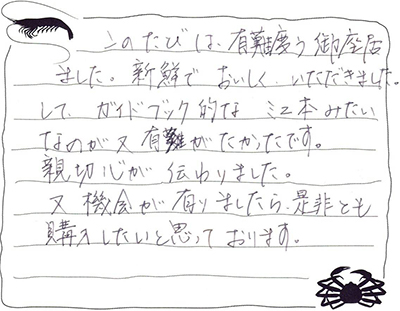 このたびは、有難度う御座居
ました。新鮮で おいしく いただきました。
して、ガイドブック的な ミニ本みたい
なのが又有難がたかったです。
親切心が 伝わりました。
又機会が有りましたら、是非とも
購入したいと思って おります。